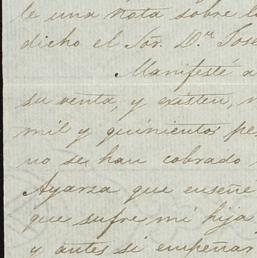 le una nota sobre l
dicho el Sor. Dn. Jose
Manifesté a
su venta, y existen,
mil y quinientos pe
no se han cobrado
Ayarza que enseñe
que sufre mi hija
y antes si empeñar